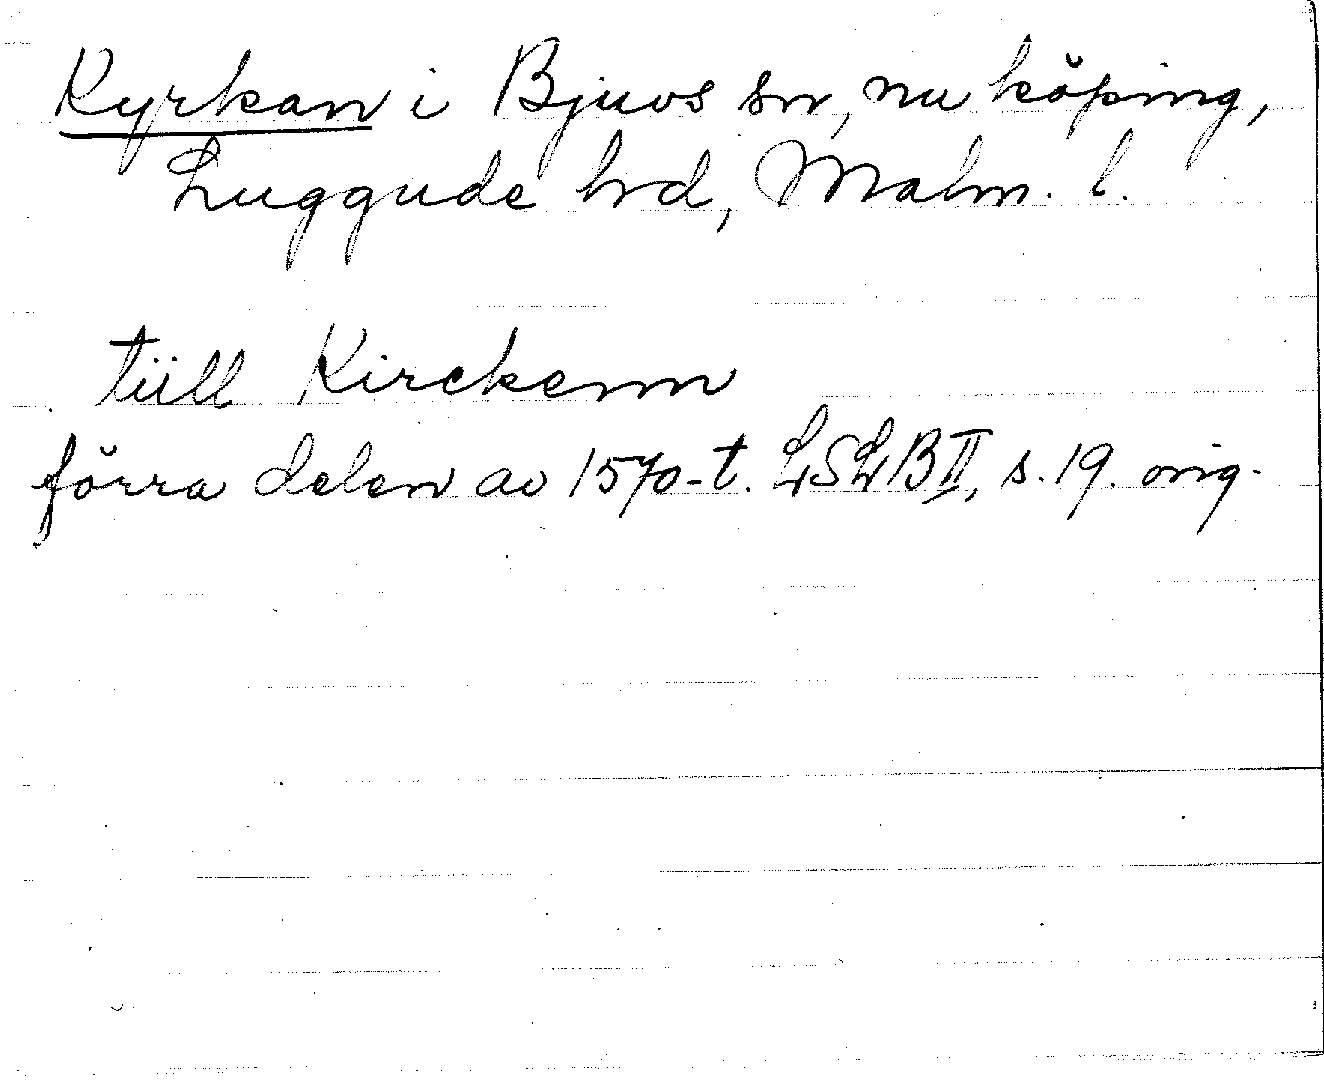 Kyrkan i Bjuvs sn, nu köping,
Luggude hd, Malm. l.
tiill Kirckenn
förra delen av 1570-t. LSLB II, s. 19. orig.